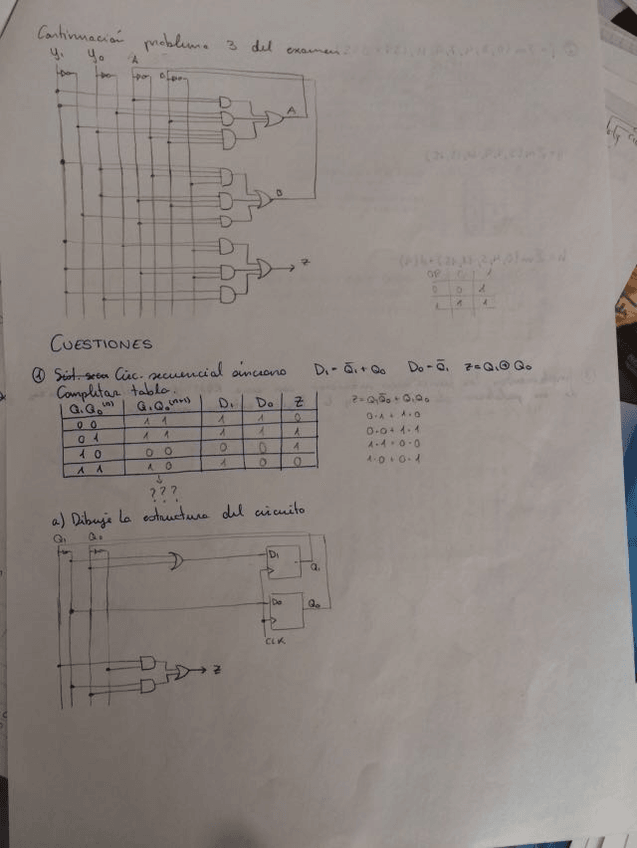 Continuación problema 3 del examen.
y₁ y₀ A B
A
B
Z
OR 0 1
0 0 1
1 1 1
CUESTIONES
① Sist. secu Circ. secuencial síncrono D₁ = Q̄₁ + Q₀ D₀ = Q̄₁ Z = Q₁ ⊕ Q₀
Completar tabla.
Q₁Q₀⁽ⁿ⁾ Q₁Q₀⁽ⁿ⁺¹⁾ D₁ D₀ Z
0 0 1 1 1 1 0
0 1 1 1 1 1 1
1 0 0 0 0 0 1
1 1 1 0 1 0 0
???
Z = Q₁Q̄₀ + Q̄₁Q₀
0·1 + 1·0
0·0 + 1·1
1·1 + 0·0
1·0 + 0·1
a) Dibuje la estructura del circuito
Q₁ Q₀
D₁ Q₁
D₀ Q₀
CLK
Z